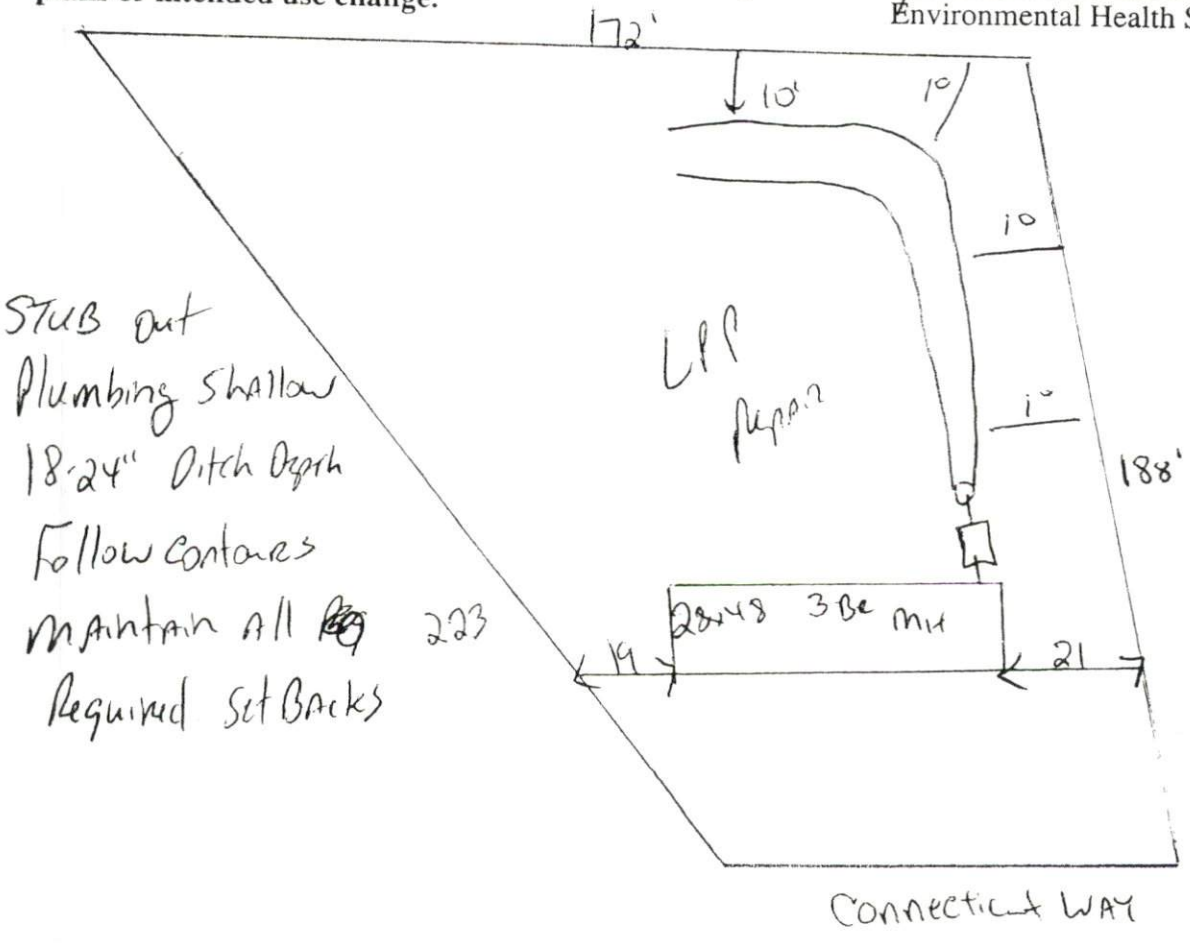 or intended use change.
Environmental Health S
172'
10'
10
10
10
188'
LPP
Repair
STUB out
Plumbing Shallow
18-24" Ditch Depth
Follow Contours
MAintain All
Required SetBAcks
223
28x48 3Be MH
19
21
Connecticut WAY